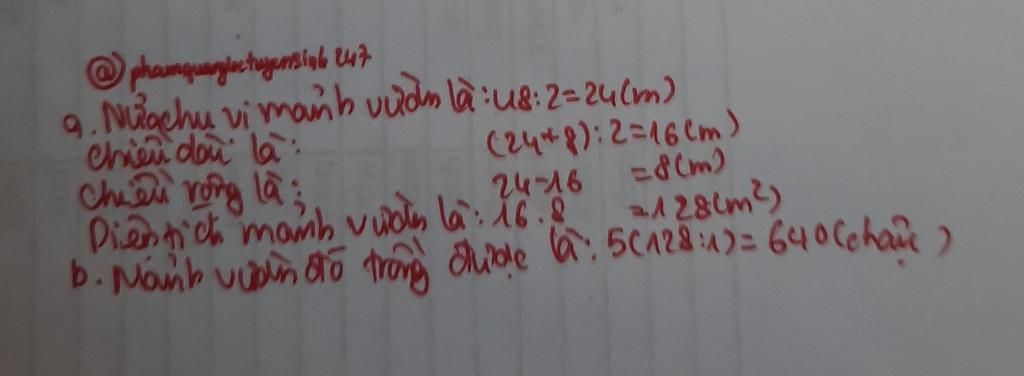 @phamquangloctuyensinh247
a. Nửa chu vi mảnh vườn là: 48:2=24(m)
Chiều dài là: (24+8):2=16(m)
Chiều rộng là: 24-16 =8(m)
Diện tích mảnh vườn là: 16.8 =128(m²)
b. Mảnh vườn đó trồng được là: 5(128:1)=640(chậu)